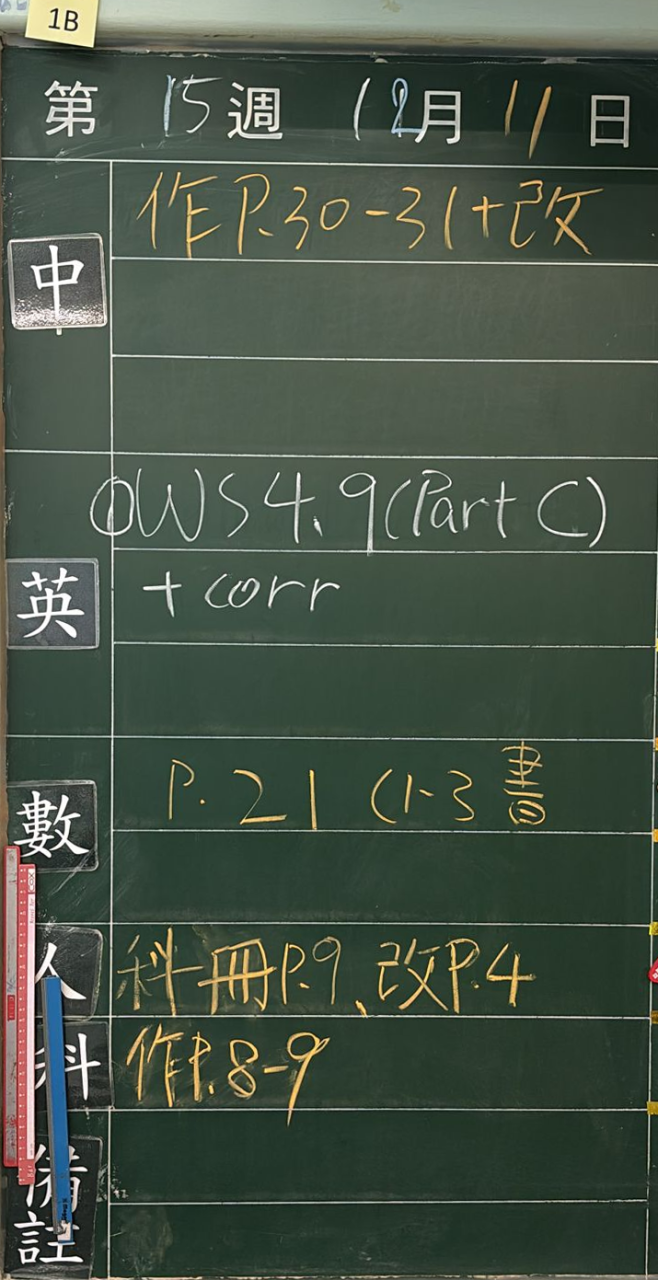 1B
第 15 週 12月 11 日
中 作P.30-31+改
OWS4.9(Part C)
英 + corr
數 P.21 (1-3 書
人 科冊P.9、改P.4
科 作P.8-9
備註